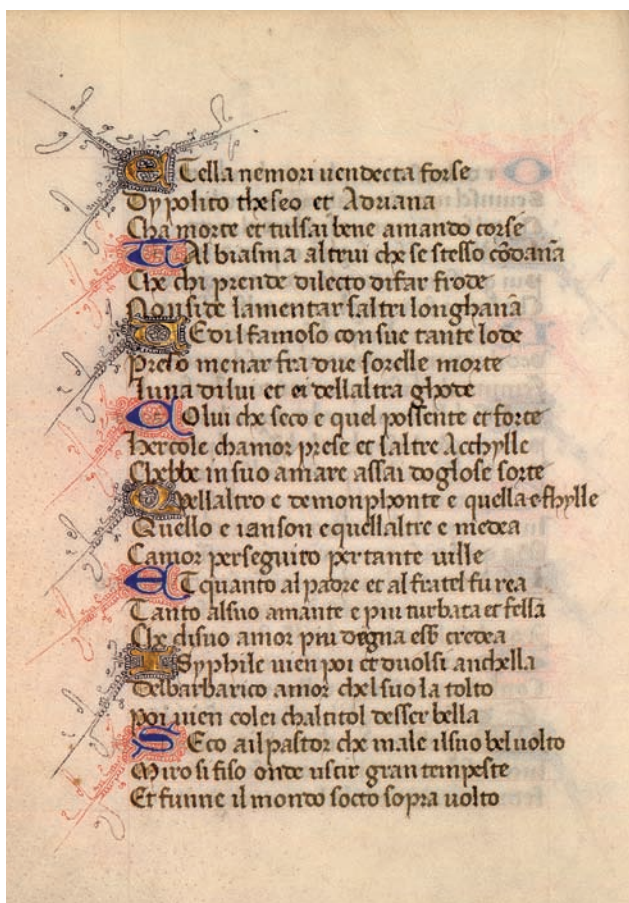 ET ella ne mori uendecta forse
Dypolito theseo et Adriana
Cha morte et tulsai bene amando corse
TAl biasma altrui che se stesso cōdanā
Che chi prende dilecto difar frode
Non side lamentar saltri longhanā
VEdi l famoso con sue tante lode
Preso menar fra due sorelle morte
Luna dilui et ei dellaltra ghode
COlui che seco e quel possente et forte
Hercole chamor prese et laltre Acchylle
Chebbe in suo amare assai doglose sorte
QVellaltro e demonphonte e quella e fhylle
Quello e ianson e quellaltre e medea
Camor perseguito per tante uille
ET quanto al padre et al fratel fu rea
Tanto alsuo amante e piu turbata et fella
Che disuo amor piu degna eſſ credea
ISyphile uien poi et duolsi anchella
Delbarbarico amor chelsuo la tolto
Poi uien colei chaltitol desser bella
SEco a il pastor che male il suo bel uolto
Miro si fiso onde uscir gran tempeste
Et funne il mondo socto sopra uolto